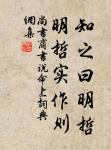 知之曰明哲
明哲实作则
尚书商书说命上词典
网集